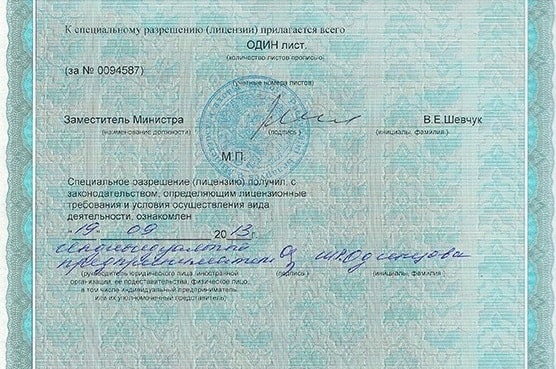 К специальному разрешению (лицензии) прилагается всего
ОДИН лист.
(количество листов прописью)
(за № 0094587)
(учетные номера листов)
Заместитель Министра В.Е.Шевчук
(наименование должности) (подпись) (инициалы, фамилия)
М.П.
Специальное разрешение (лицензию) получил, с
законодательством, определяющим лицензионные
требования и условия осуществления вида
деятельности, ознакомлен
"19" 09 2013 г.
Индивидуальный
предприниматель Одинцова
(руководитель юридического лица, иностранной (подпись) (инициалы, фамилия)
организации, ее подоставительства, физическое лицо,
в том числе индивидуальный предприниматель
или их уполномоченный представитель)